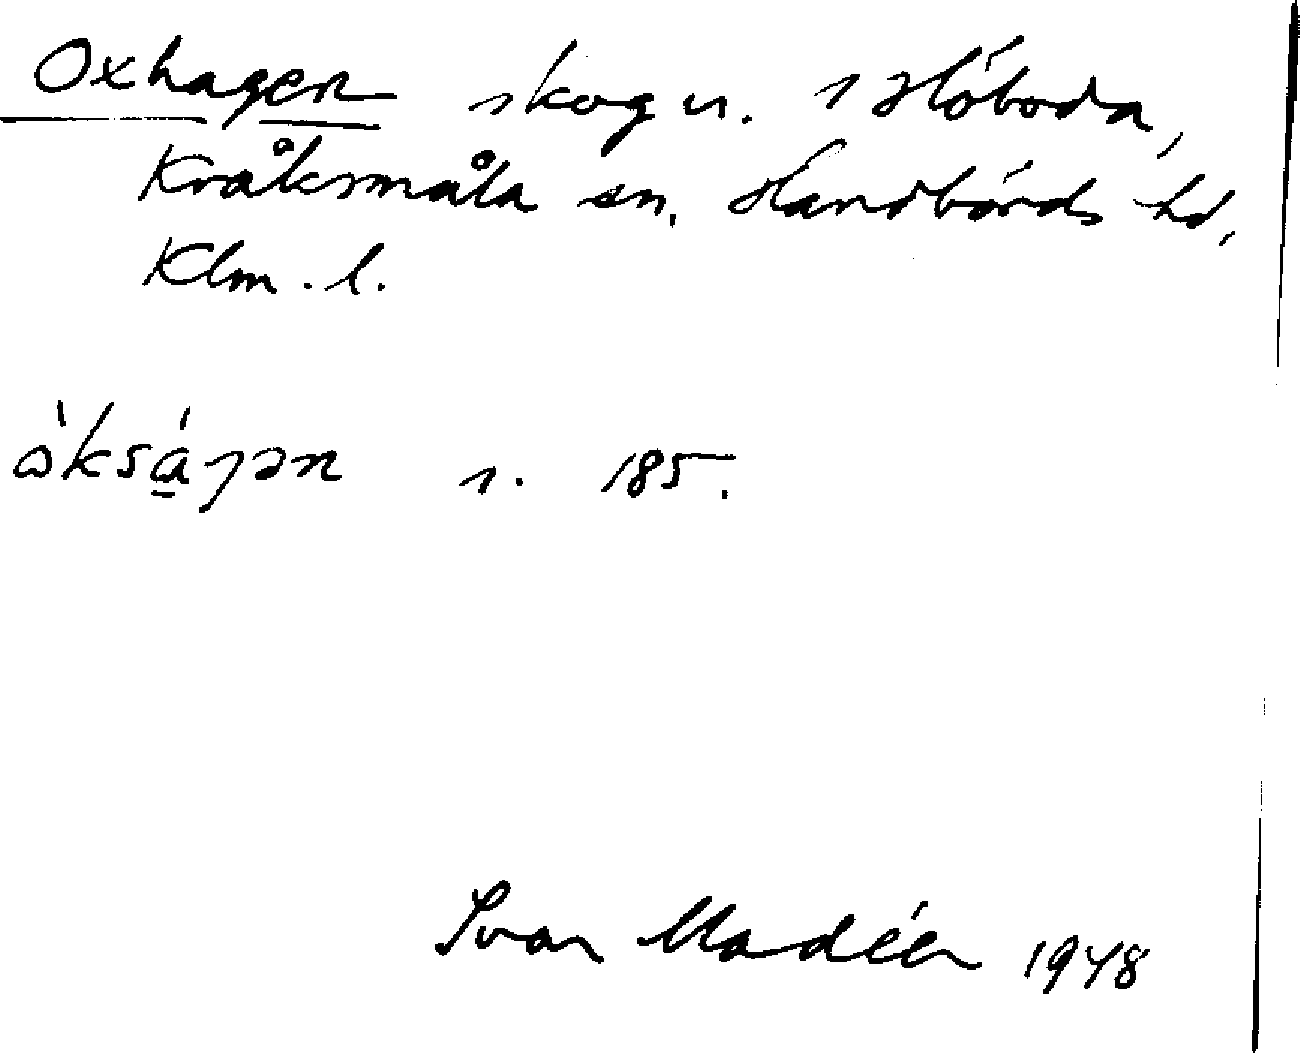 Oxhagen skog u. s Höboda,
Kråksmåla sn, Handbörds hd,
Klm. l.
s. 185.
Ivar Modéer 1948